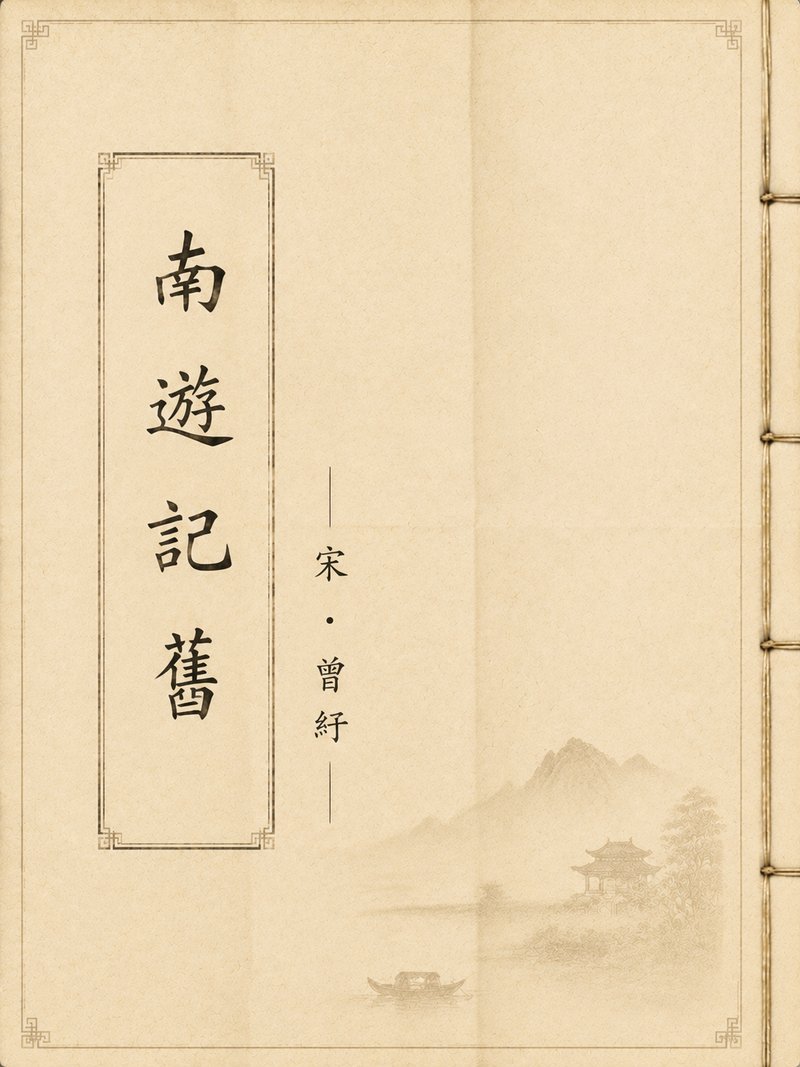 南遊記舊
宋·曾紆